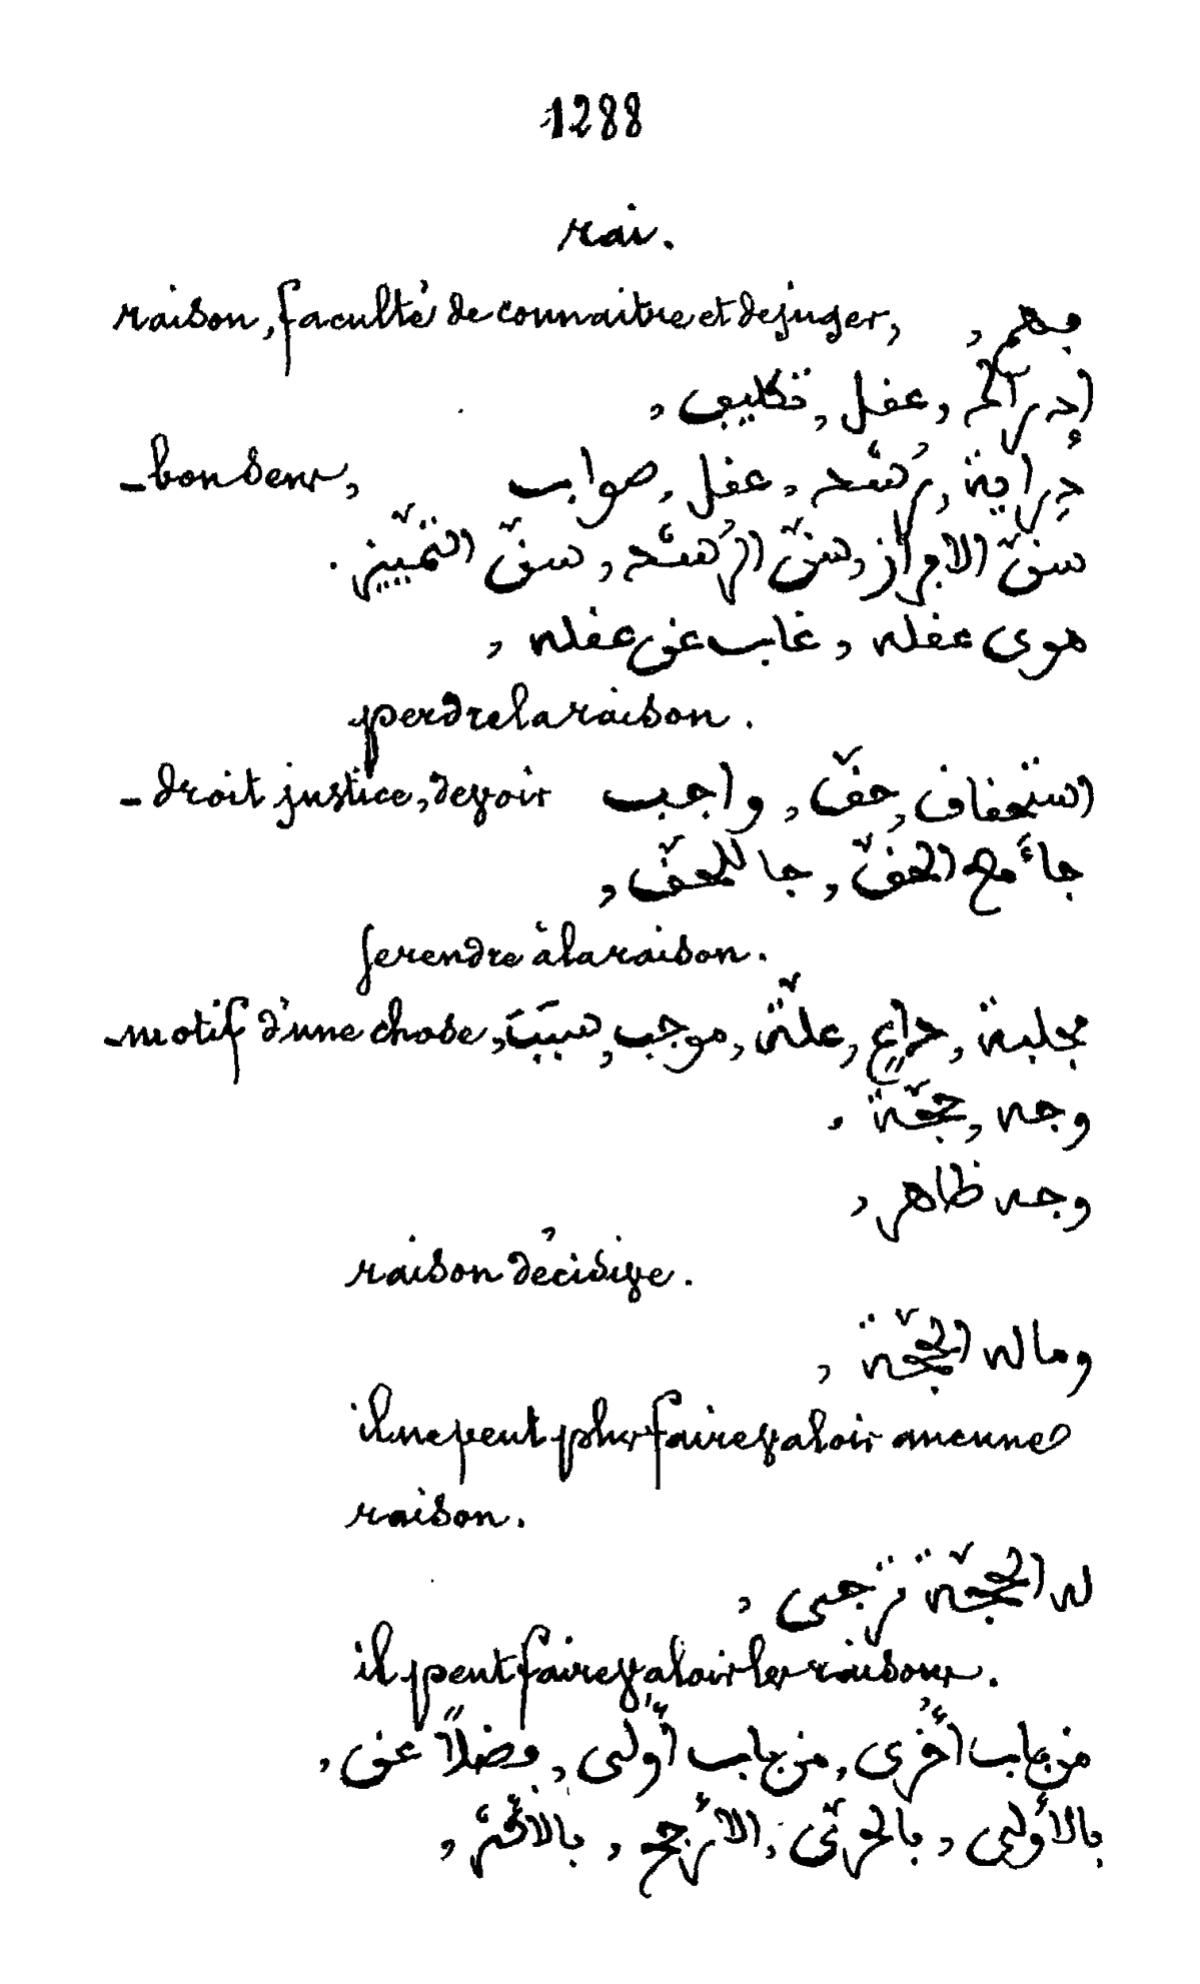 1288
rai.
raison, faculté de connaitre et de juger, فهم ,
إدراك , عقل , تكليف ,
- bon sens, دِراية , رُشد , عقل , صواب
سنّ الافراز , سنّ الرُشد , سنّ التمّييز .
هوى عقله , غاب عن عقله ,
perdre la raison.
- droit justice, devoir استحقاق , حقّ , واجب
جاءَ مع الحقّ , جا للحقّ ,
se rendre à la raison.
- motif d'une chose, مجلبة , داعٍ , علّة , موجب , سبَبَ
وجه , حجّة .
وجه ظاهر ,
raison décisive.
وما له الحجّة ,
il ne peut plus faire valoir aucune
raison.
له الحجّة ترجى ,
il peut faire valoir les raisons.
من باب أُخرى , من باب أَولى , فضلاً عن ,
بالأولى , بالحريّ , الأرجح ,